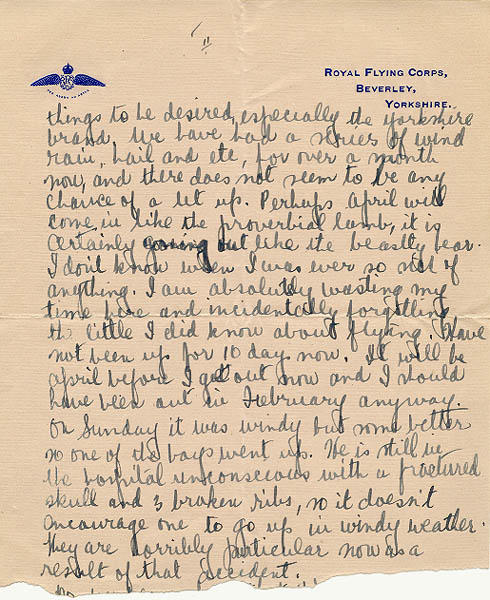 11
ROYAL FLYING CORPS,
BEVERLEY,
YORKSHIRE.
things to be desired, especially the yorkshire
brand. We have had a series of wind
rain, hail and etc, for over a month
now, and there does not seem to be any
chance of a let up. Perhaps April will
come in like the proverbial lamb, it is
certainly going out like the beastly bear.
I don't know when I was ever so sick of
anything. I am absolutely wasting my
time here and incidentally forgetting
the little I did know about flying. Have
not been up for 10 day now. It will be
april before I get out now and I should
have been out in February anyway.
On Sunday it was windy but some better
so one of the boys went up. He is still in
the hospital unconscious with a fractured
skull and 3 broken ribs, so it doesn't
encourage one to go up in windy weather.
They are horribly particular now as a
result of that accident.